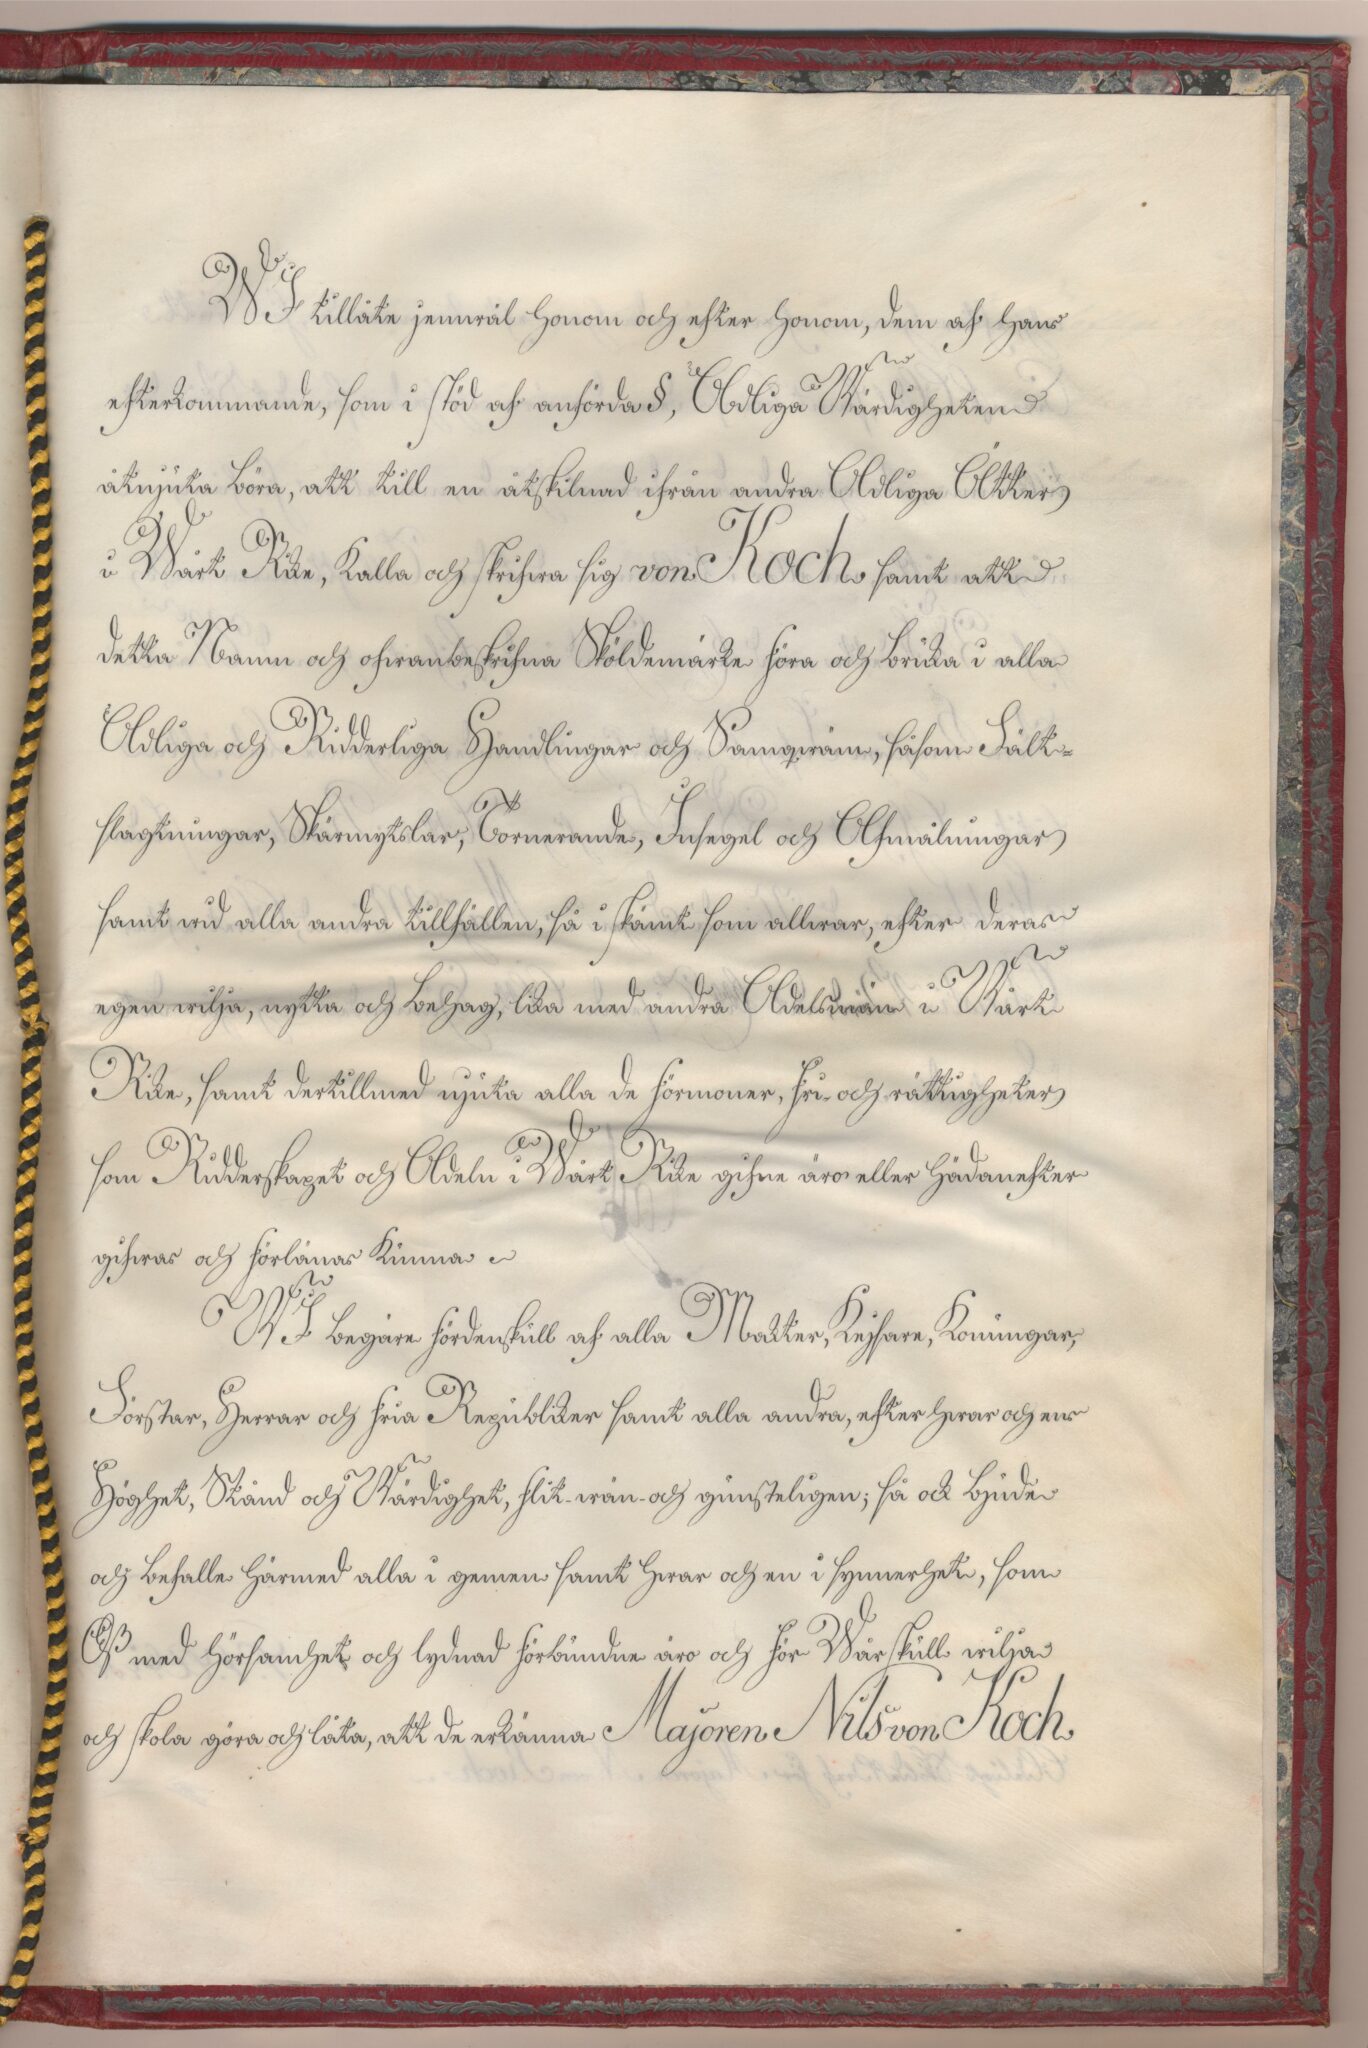 WI tillåte jemväl honom och efter honom, dem af hans
efterkommande, som i stöd af anförda §, Adliga Wärdigheten
åtnjuta böra, att till en åtskilnad ifrån andra Adliga Ätter
i Wårt Rike, kalla och skrifwa sig von Koch samt att
detta Namn och ofwanbeskrifna Sköldemärke föra och bruka i alla
Adliga och Ridderliga Handlingar och Samqwäm, såsom Fält-
slagtningar, Skärmytslar, Tornerande, Insegel och Afmålningar
samt wid alla andra tillfällen, så i skämt som allwar, efter deras
egen wilja, nytta och behag, lika med andra Adelsmän i Wårt
Rike, samt dertillmed njuta alla de förmoner, fri- och rättigheter
som Ridderskapet och Adeln i Wårt Rike gifne äro eller hädanefter
gifwas och förlänas kunna
WI begäre fördenskull af alla Makter, Kejsare, Konungar,
Förstar, Herrar och fria Republiker samt alla andra, efter hwar och ens
Höghet, Stånd och Wärdighet, flit- wän- och gunsteligen; så ock bjude
och befalle härmed alla i gemen samt hwar och en i synnerhet, som
Oß med hörsamhet och lydnad förbundne äro och för Wår skull wilja
och skola göra och låta, att de erkänna Majoren Nils von Koch